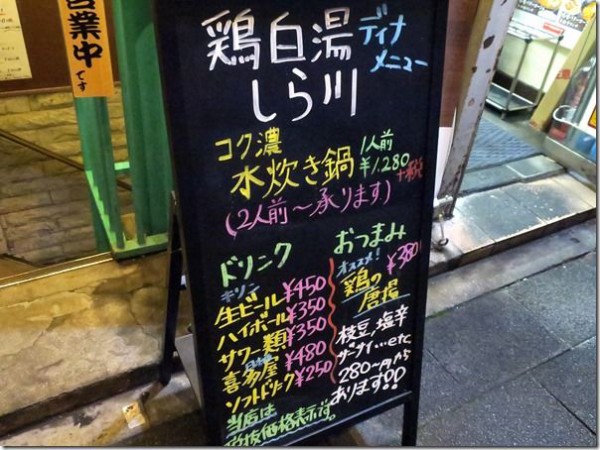 営業中
です
鶏白湯
ディナー
メニュー
しら川
コク濃
水炊き鍋
1人前
¥1,280
+税
(2人前〜承ります)
ドリンク
キリン
生ビール¥450
ハイボール¥350
サワー類¥350
日本酒
喜多屋¥480
ソフトドリンク¥250
当店は
税抜価格表示です。
おつまみ
オススメ!
¥380
鶏の
唐揚
枝豆,塩辛
ザーサイ…etc
280〜円から
あります!!